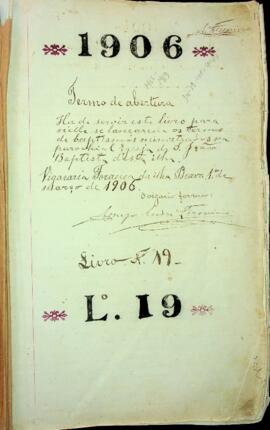 1906
Termo de abertura
Ha de servir este livro para
nelle se lançarem os termos
de baptismos ministrados na
parochial Egreja de S. João
Baptista d'esta ilha.
Vigararia Foranea da ilha Brava, 1 de
março de 1906.
Livro Nº 19
Lº. 19